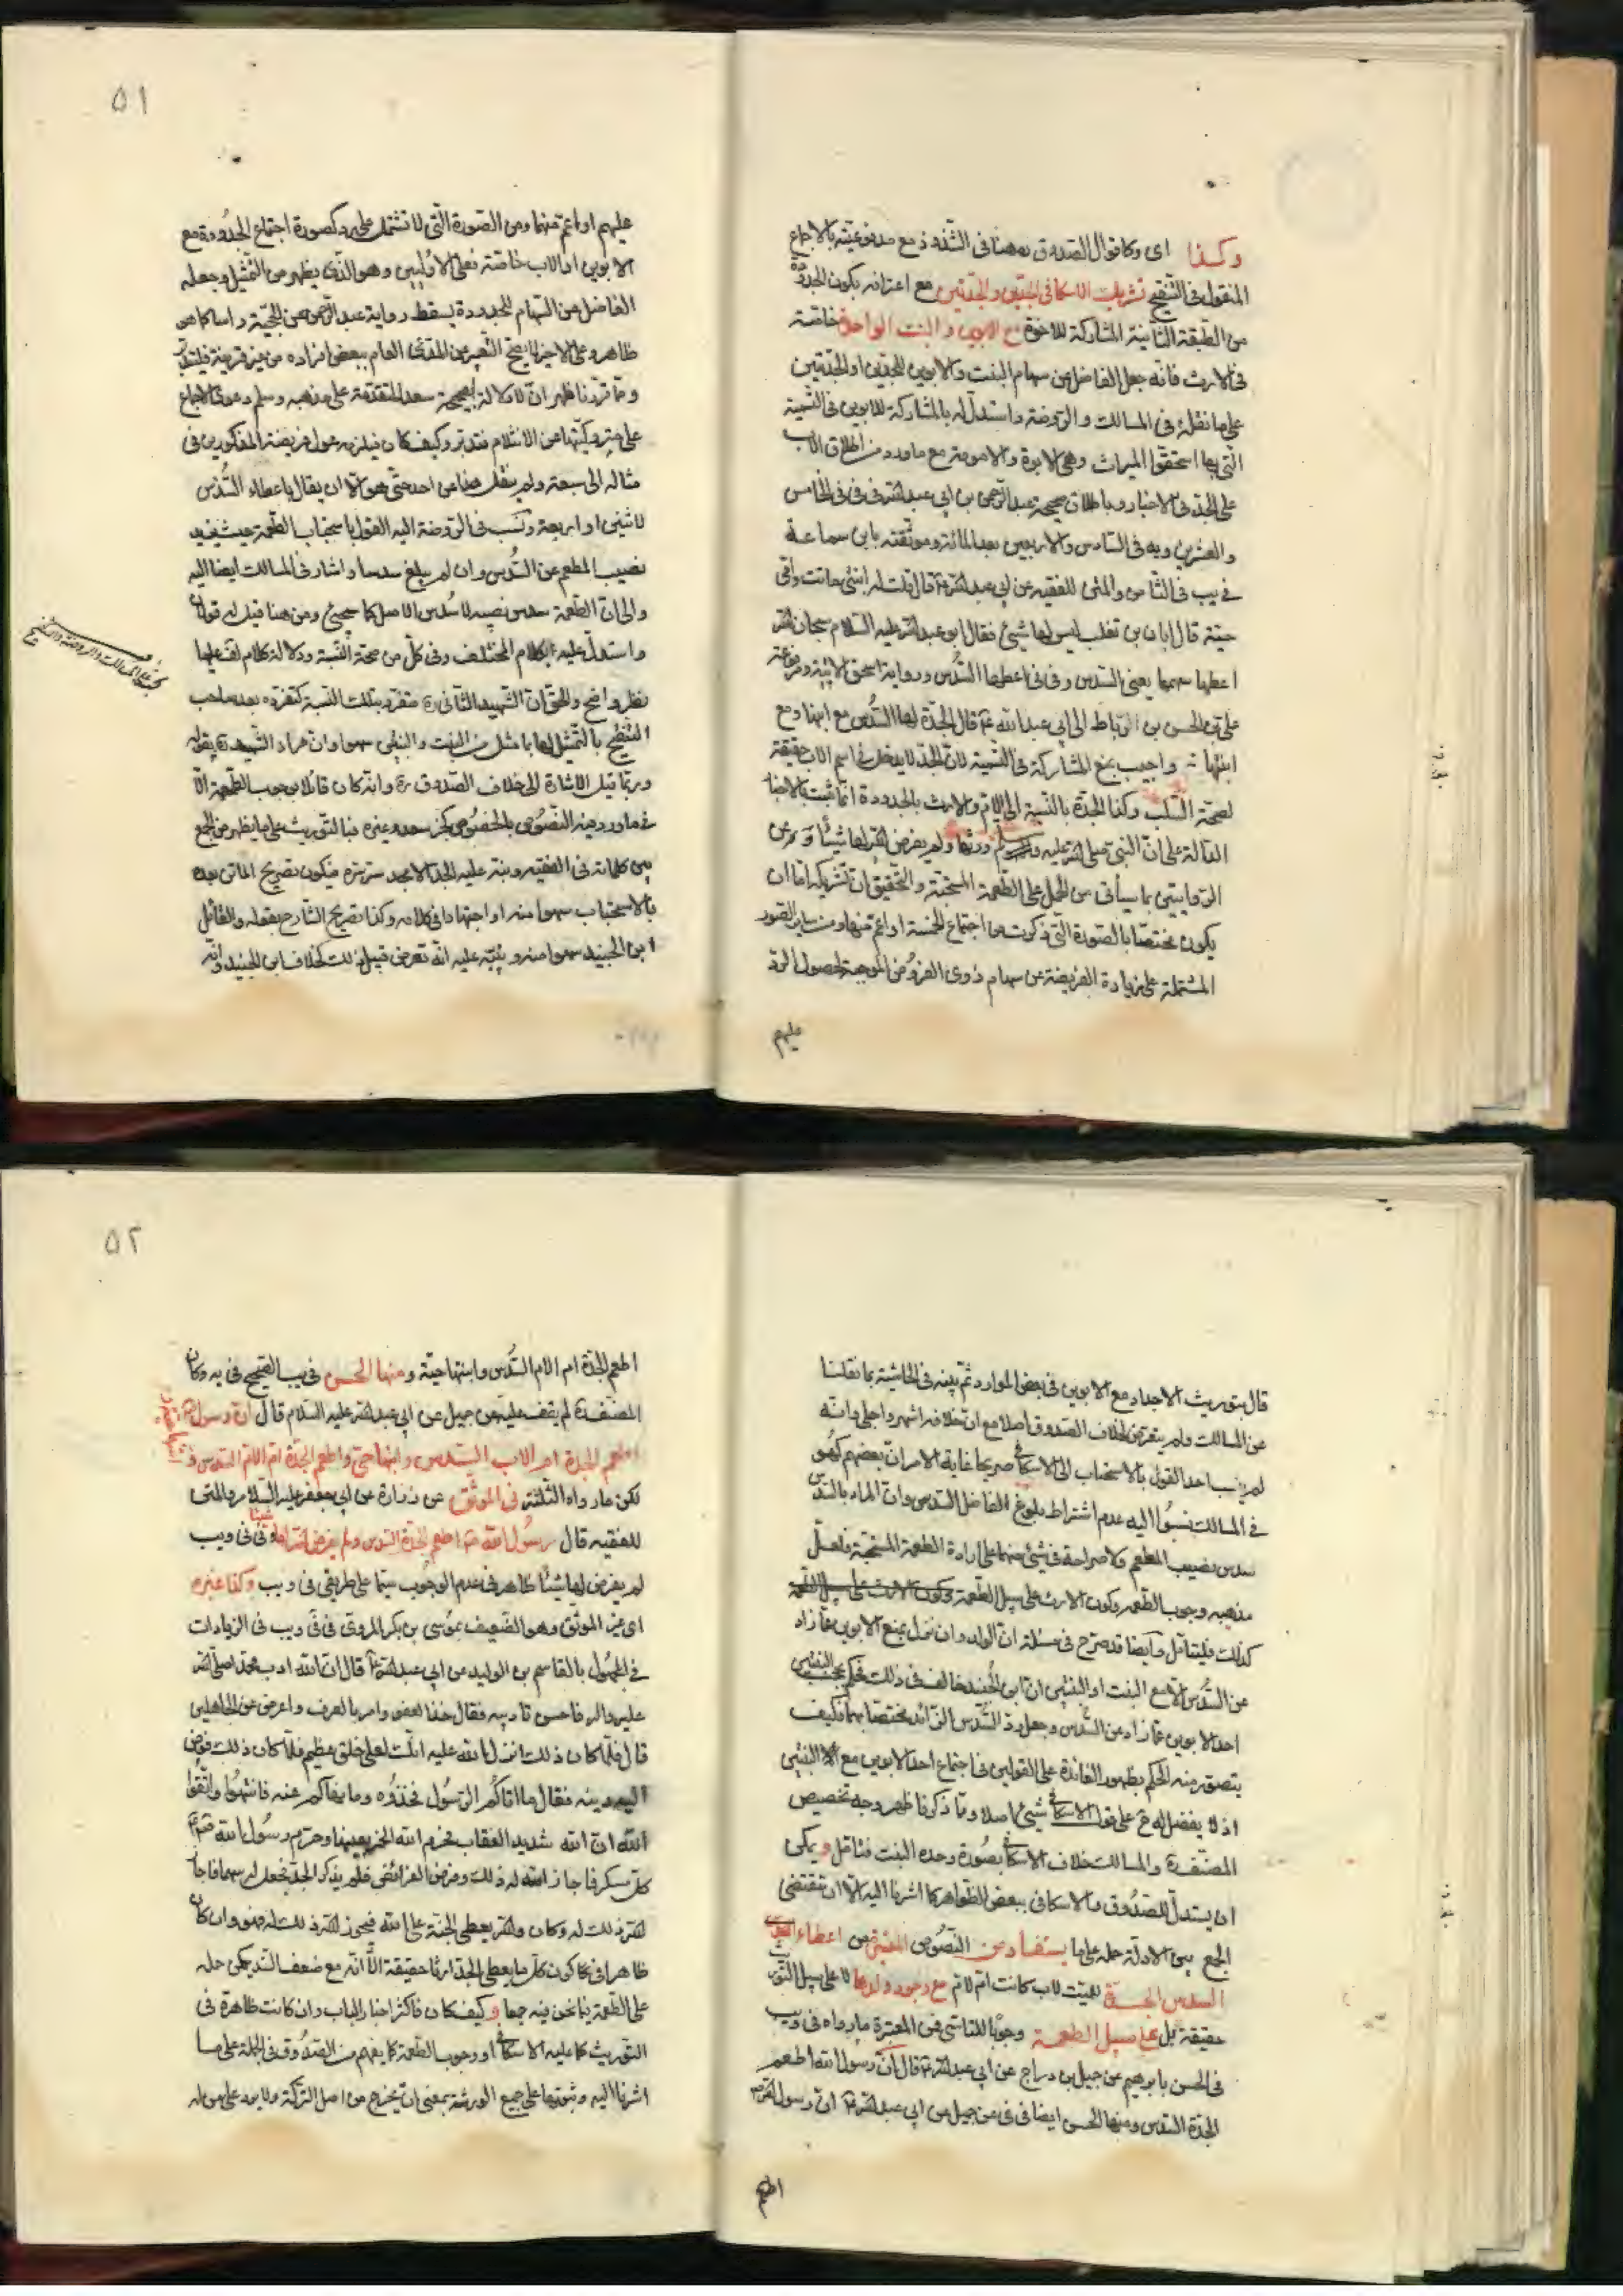 وكذا اى وكا قوال الصدوق ره هنا فى الشذوذ مع مدفوعيته بالاجماع
المنقول فى التنقيح تشريك الاسكافى الجدين والجدتين مع اعترافه بكون الجدودة
من الطبقة الثانية المشاركة للاخوة مع الابوين والبنت الواحدة خاصة
فى الارث فانه جعل الفاضل من سهام البنت والابوين للجدين او الجدتين
على ما نقله فى المسالك والروضة واستدل له بالمشاركة للابوين فى التسمية
التى بها استحقوا الميراث وهى الابوة والامومة مع ما ورد من اطلاق الاب
على الجد فى الاخبار وباطلاق صحيحة عبد الرحمن بن ابى عبد الله فى فى فى الخامس
والعشرين ويه فى السادس والاربعين بعد المائة وموثقته بابن سماعة
فى يب فى الثامن والمتن للفقيه عن ابى عبد الله ع قال قلت له ابنتى ماتت وامى
حية قال ابان بن تغلب ليس لها شيئ فقال ابو عبد الله عليه السلام سبحان الله
اعطها سهما يعنى السدس وفى فى اعطها السدس ورواية اسحق الاتية ومرفوعة
على بن الحسن بن الرباط الى ابى عبد الله ع قال الجدة لها السدس مع ابنها ومع
ابنتها واجيب بمنع المشاركة فى التسمية لان الجد لا يدخل فى اسم الاب حقيقة
لصحة السلب وكذا الجدة بالنسبة الى الام والارث بالجدودة انما ثبت بالاخبار
الدالة على ان النبى صلى الله عليه وسلم ورثها ولم يفرض الله لها شيئا وعن
الروايتين بما سيأتى من الحمل على الطعمة المستحبة والتحقيق ان تشريكه اما ان
يكون مختصا بالصورة التى ذكرت من اجتماع الخمسة او اعم منها ومن ساير الصور
المشتملة على زيادة الفريضة عن سهام ذوى الفروض الموجبة لحصول الرد
عليهم
٥١
عليهم او اعم منهما ومن الصورة التى لا تشتمل على رد كصورة اجتماع الجدودة مع
الابوين او الاب خاصة فعلى الاولين وهو الذى يظهر من التمثيل وجعله
الفاضل من السهام للجدودة يسقط رواية عبد الرحمن عن الحجية راسا كما هو
ظاهر وعلى الاخير لا يصح التعبير عن المدعى العام ببعض افراده من غير قرينة فليتدبر
ومما قررنا ظهر ان لا دلالة لصحيحة سعد المتقدمة على مذهبه وسلم دعوى الاجماع
على متروكيتها عن الانثلام فتدبر وكيف كان فيلزمه عول فريضة المذكورين فى
مثاله الى سبعة ولم ينقل هنا عن احد حتى هو الا ان يقال باعطاء السدس
لاثنين او اربعة ونسب فى الروضة اليه القول باستحباب الطعمة حيث يزيد
نصيب المطعم عن السدس وان لم يبلغ سدسا واشار فى المسالك ايضا اليه
والى ان الطعمة سدس نصيبه لا سدس الاصل كما سيجيئ ومن هنا قيل له قولان
واستدل عليه بكلام المختلف وفى كل من صحة النسبة ودلالة كلام لف عليها
نظر واضح والحق ان الشهيد الثانى ره متفرد بتلك النسبة كتفرده بعد صاحب
التنقيح بالتمثيل لها بامثل من البنت والبنتين سهوا وان مراد الشهيد ره بقوله
وربما قيل الاشارة الى خلاف الصدوق ره وانه كان قائلا بوجوب الطعمة الا
فى ما ورد فيه النصوص بالخصوص كخبر سعد وغيره فبالتوريث على ما يظهر من الجمع
بين كلماته فى الفقيه ونبه عليه الجد الامجد ستر سره فيكون تصريح الماتن بعده
بالاستحباب سهوا منه او اجتهادا فى كلامه وكذا تصريح الشارح بقوله والقائل
ابن الجنيد سهوا منه وينبه عليه انه تعرض قبيل ذلك لخلاف ابن الجنيد وانه
قال بتوريث الاجداد مع الابوين فى بعض الموارد ثم بينه فى الحاشية بما نقلنا
عن المسالك ولم يتعرض لخلاف الصدوق اصلا مع ان خلافه اشهر واجلى وانه
لم ينسب احد القول بالاستحباب الى الاسكافى صريحا غاية الامر ان بعضهم كهو
فى المسالك نسبوا اليه عدم اشتراط بلوغ الفاضل السدس وان المراد بالسدس
سدس نصيب المطعم ولا صراحة فى شيئ منهما على ارادة الطعمة المستحبة فلعل
مذهبه وجوب الطعمه وكون الارث على سبيل الطعمة
كذلك فليتامل وايضا قد صرح فى مسئلة ان الولد وان نزل يمنع الابوين عما زاد
عن السدس الا مع البنت او البنتين ان ابن الجنيد خالف فى ذلك فحكم بحجب البنتين
احد الابوين عما زاد عن السدس وجعل رد السدس الزائد مختصا بهما فكيف
يتصور منه الحكم بظهور الفائدة على القولين فى اجتماع احد الابوين مع البنتين
اذ لا يفضل له ح على قول الاسكافى شيئ اصلا ومما ذكرنا ظهر وجه تخصيص
المصنف ره والمسالك خلاف الاسكافى بصورة وحدة البنت فتامل ويمكن
ان يستدل للصدوق والاسكافى ببعض الظواهر كما اشرنا اليه الا ان مقتضى
الجمع بين الادلة حمله على ما يستفاد من النصوص المعتبرة من اعطاء
السدس الجدة لميت لاب كانت ام لام مع وجود ولدها لا على سبيل التوريث
حقيقة بل على سبيل الطعمة وجوبا للتاسى فمن المعتبرة ما رواه فى ويب
فى الحسن بابرهيم عن جميل بن دراج عن ابى عبد الله ع قال ان رسول الله اطعم
الجدة السدس ومنها الحسن ايضا فى فى عن جميل عن ابى عبد الله ع ان رسول الله ص
اطعم
٥٢
اطعم الجدة ام الام السدس وابنتها حية ومنها الحسن فى يب الصحيح فى يه وكان
المصنف ره لم يقف عليه عن جميل عن ابى عبد الله عليه السلام قال ان رسول الله
اطعم الجدة ام الاب السدس وابنها حى واطعم الجدة ام الام السدس
لكن ما رواه الثلثة فى الموثق عن زرارة عن ابى جعفر عليه السلام والمتن
للفقيه قال رسول الله ص اطعم الجدة السدس ولم يفرض الله لها شيئا وفى فى ويب
لم يفرض لها شيئا ظاهر فى عدم الوجوب سيما على طريقى فى ويب وكذا غيره
اى غير الموثق وهو الضعيف بموسى بن بكر المروى فى فى ويب فى الزيادات
فى المجهول بالقاسم بن الوليد عن ابى عبد الله ع قال ان الله ادب محمدا صلى الله
عليه واله فاحسن تاديبه فقال خذ العفو وامر بالعرف واعرض عن الجاهلين
قال فلما كان ذلك انزل الله عليه انك لعلى خلق عظيم فلما كان ذلك فوض
اليه دينه فقال ما اتاكم الرسول فخذوه وما نهاكم عنه فانتهوا واتقوا
الله ان الله شديد العقاب فحرم الله الخمر بعينها وحرم رسول الله ص
كل مسكر فاجاز الله له ذلك وفرض الفرائض فلم يذكر الجد فجعل له سهما فاجاز
الله ذلك له وكان والله يعطى الجنة على الله فيجوز الله ذلك له فهو وان كان
ظاهرا فى كون كل ما يعطى الجد ارثا حقيقة الا انه مع ضعف السند يمكن حمله
على الطعمة بانحن فيه جمعا وكيف كان فاكثر اخبار الباب وان كانت ظاهرة فى
التوريث كما عليه الاسكافى او وجوب الطعمة كما يفهم من الصدوق فى الجملة على ما
اشرنا اليه وثبوتها على جميع الورثة بمعنى ان يخرج من اصل التركة ولا يرد على من له